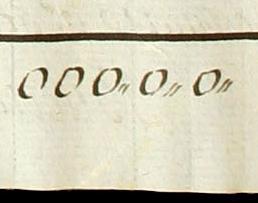 000〃0〃0〃